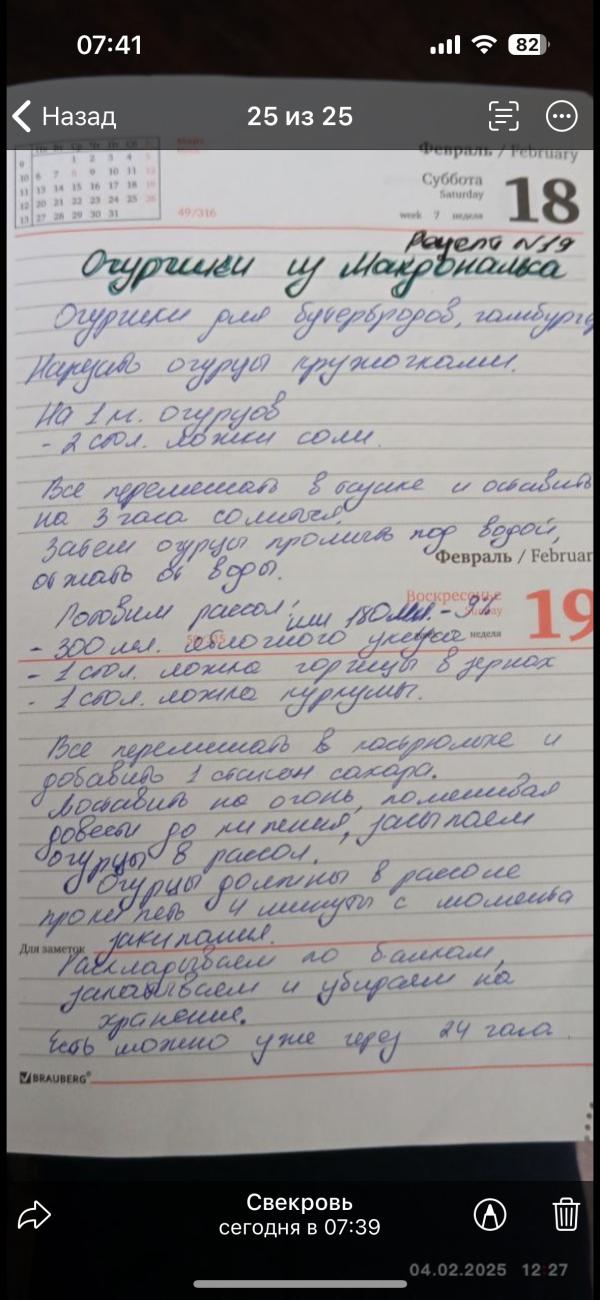 07:41
82
Назад
25 из 25
Пн Вт Ср Чт Пт Сб
9 1 2 3 4 5
10 6 7 8 9 10 11 12
11 13 14 15 16 17 18 19
12 20 21 22 23 24 25 26
13 27 28 29 30 31
49/316
Февраль / February
Суббота
Saturday
week 7 неделя
18
Рецепт №19
Огурчики из Макдональса
Огурчики для бутербродов, гамбургер
Нарезать огурцы кружочками.
На 1 кг. огурцов
- 2 стол. ложки соли.
Все перемешать в и оставить
на 3 часа солиться.
Затем огурцы промыть под водой,
отжать от воды.
Февраль / Februar
Воскресенье
Sunday
19
неделя
Готовим рассол: или 180 мл. - 9%
- 300 мл. яблочного уксуса
- 1 стол. ложка горчицы в зернах
- 1 стол. ложка куркумы.
Все перемешать в кастрюльке и
добавить 1 стакан сахара.
Поставить на огонь, помешивая
довести до кипения, засыпаем
огурцы в рассол.
Огурцы должны в рассоле
прокипеть 4 минуты с момента
закипания.
Для заметок
Раскладываем по банкам,
закатываем и убираем на
хранение.
Есть можно уже через 24 часа.
BRAUBERG®
Свекровь
сегодня в 07:39
04.02.2025 12:27